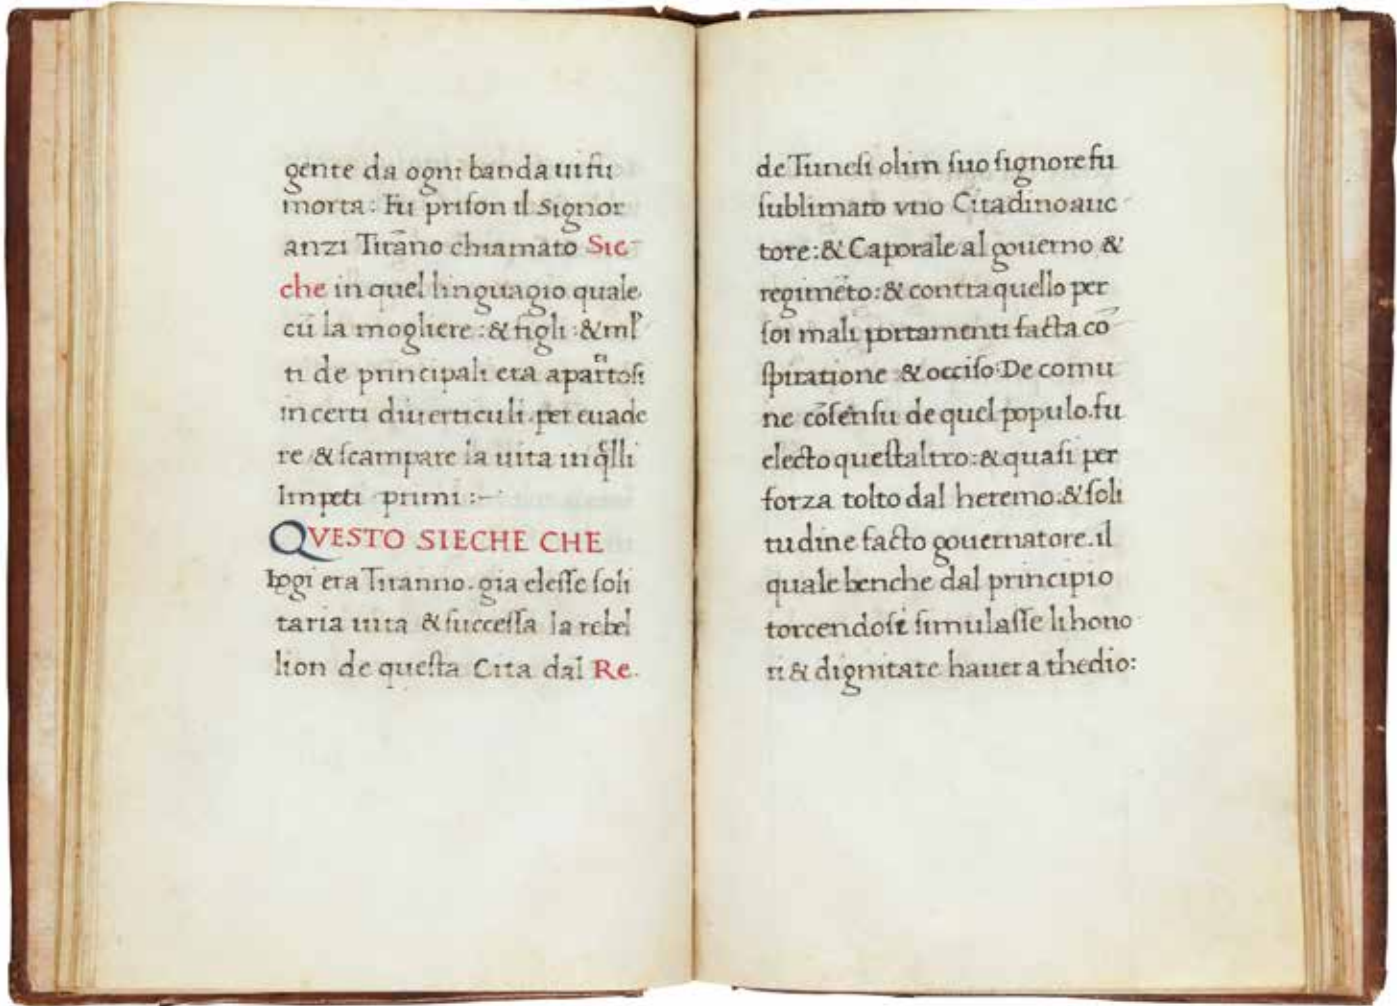 gente da ogni banda ui fu
morta: Fu priſon il Signor
anzi Tirãno chiamato Sie-
che in quel linguagio quale
cũ la mogliere: & figli: & ml
ti de principali era
in certi diuerticuli. per euade
re & ſcampare la uita in q̃lli
Impeti primi :-
QVESTO SIECHE CHE
hogi era Tiranno. gia eleſſe ſoli
taria uita & ſucceſſa la rebel
lion de queſta Cita dal Re.
de Tuneſi olim ſuo ſignore fu
ſublimato vno Citadino auc-
tore: & Caporale al gouerno &
regimẽto: & contra quello per
ſoi mali portamenti facta cõ-
ſpiratione & occiſo: De comu
ne cõſenſu de quel populo. fu
electo queſtaltro: & quaſi per
forza tolto dal heremo: & ſoli
tudine facto gouernatore. il
quale benche dal principio
torcendoſi ſimulaſſe li hono
ri & dignitate hauer a thedio: